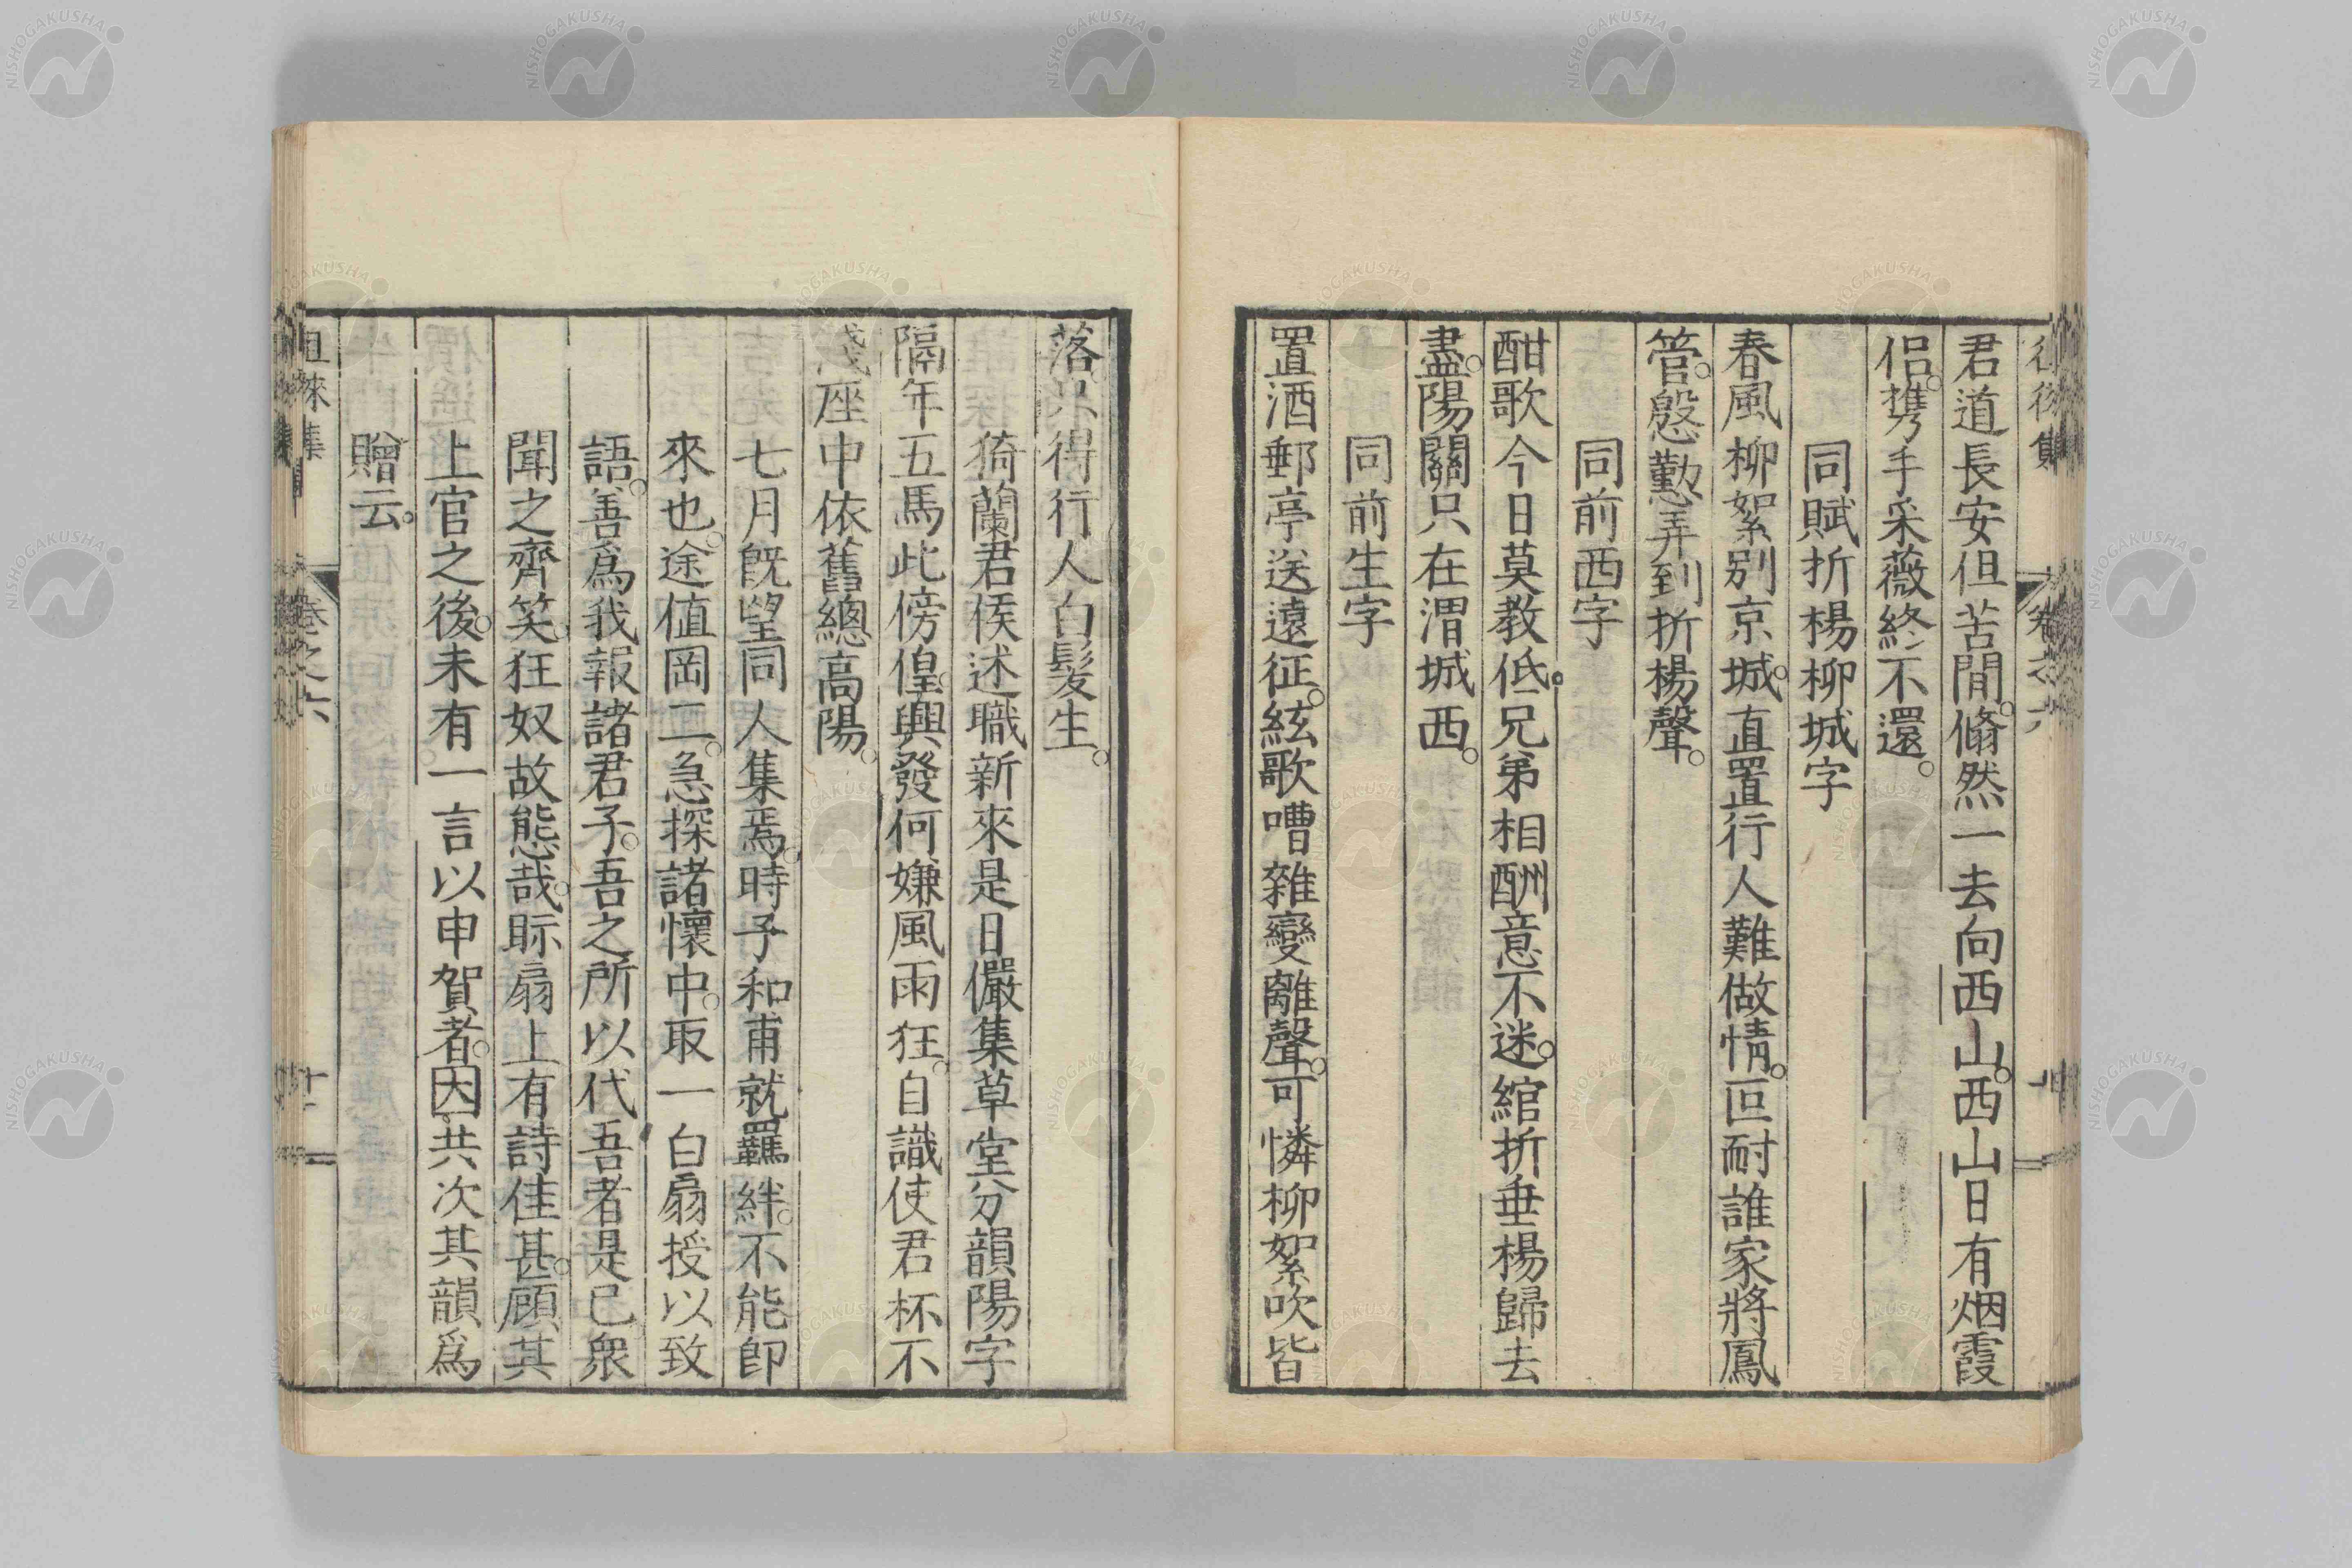 君道長安但苦間。翛然一去向西山。西山日有烟霞
侶。携手采薇終不還。
同賦折楊柳城字
春風柳絮別京城。直置行人難做情。叵耐誰家將鳳
管。慇懃弄到折楊聲。
同前西字
酣歌今日莫教低。兄弟相酬意不迷。綰折垂楊歸去
盡。陽關只在渭城西。
同前生字
置酒郵亭送遠征。絃歌嘈雜變離聲。可憐柳絮吹皆
落。只得行人白髮生。
猗蘭君侯述職新來是日儼集草堂分韻陽字
隔年五馬此傍偟。興發何嫌風雨狂。自識使君杯不
淺。座中依舊總高陽。
七月旣望同人集焉。時子和甫就羈絆。不能卽
來也。途值岡二。急探諸懷中。取一白扇授以致
語。善爲我報諸君子。吾之所以代吾者是已衆
聞之齊笑。狂奴故態哉。眎扇上有詩佳甚。顧其
上官之後。未有一言以申賀者。因共次其韻爲
贈云。
徂徠集
卷之六
十一
NISHOGAKUSHA